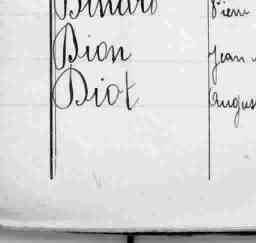 Binard Pierre
Dion Jean
Diot August